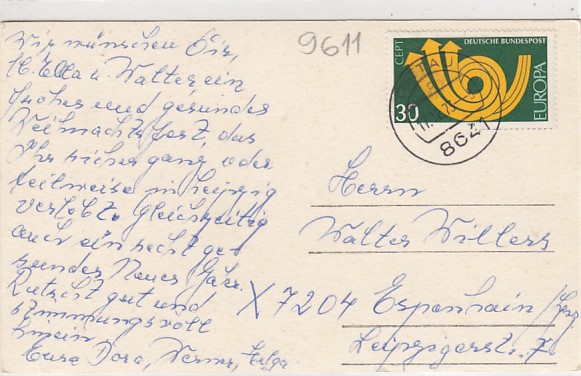 Wir wünschen Dir,
lb. Ella u. Walter, ein
frohes und gesundes
Weihnachtsfest, das
Ihr sicher ganz oder
teilweise in Leipzig
verlebt. Gleichzeitig
auch ein recht ge-
sundes Neues Jahr.
Rutscht gut und
stimmungsvoll
hinein
Eure Dora, Werner, Helga
9611
CEPT
DEUTSCHE BUNDESPOST
30
EUROPA
8621
Herrn
Walter Willers
X 7204 Espenhain
Leipzigerstr. 7